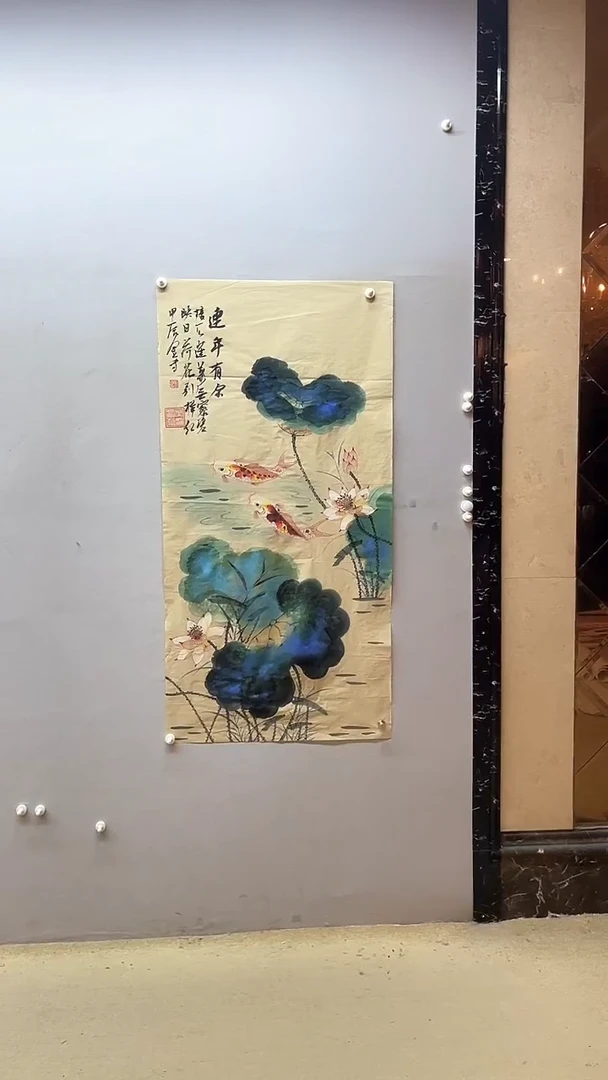 連年有余
接天蓮葉無窮碧
映日荷花别樣红
甲辰